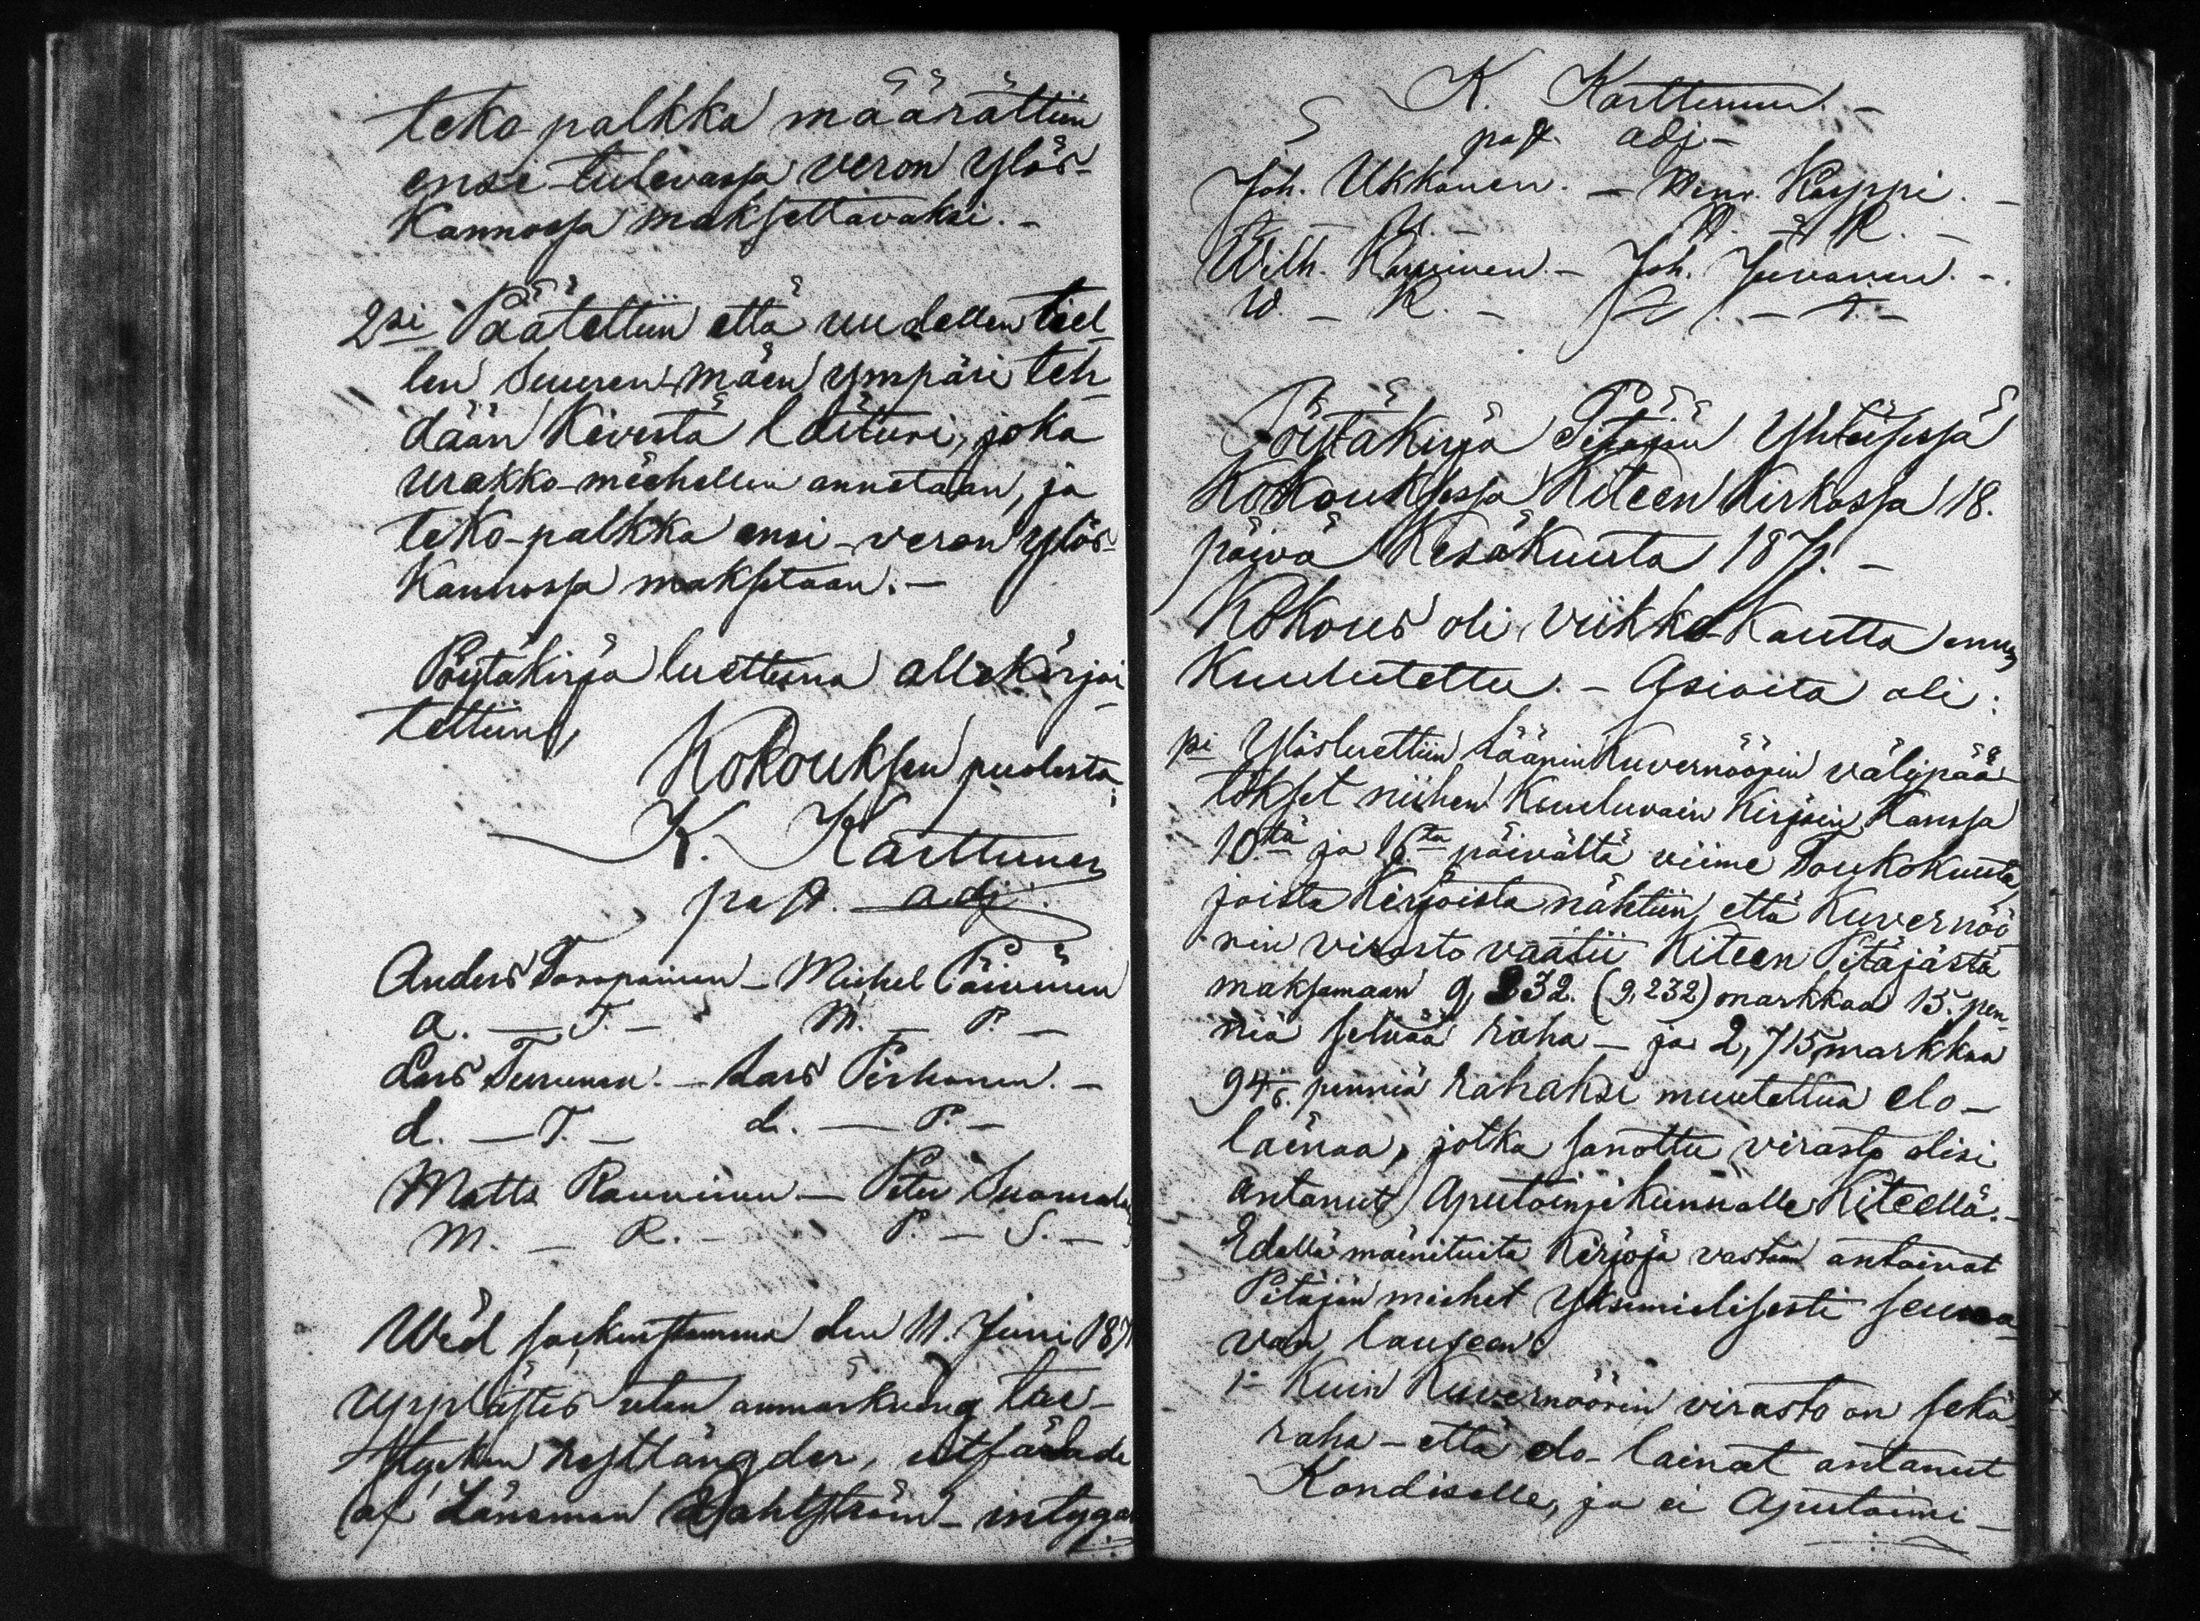 teko palkka määrättiin
ensi tulevassa veron ylös-
kannossa maksettavaksi. -
2si Päätettiin että uudellen tiel-
len Suuren mäen ympäri teh-
dään kivestä laituri, joka
urakko-miehellen annetaan, ja
teko-palkka ensi-veron ylös-
kannossa maksetaan. -
Pöytäkirja luettuna allekirjoi-
tettiin,
Kokouksen puolesta;
K. Karttunen
past. adj.
Anders Toropainen - Michel Päivinen
A. - T. - M. - P. -
Lars Turunen. - Lars Pirhonen. -
L. - T. - L. - P. -
Matts Rauvinen - Peter Suomalai
M. - R. - P. - S. -
Wid sockenstämma den 11. Juni 1871
upplästes utan anmärkning tve-
stycken restlängder, utfärdade
af Länsman Dahlström - intygar
K. Karttunen. -
past. adj. -
Joh. Ukkonen. - Henr. Karppi. -
J. - U. - H. - K. -
Wilh. Karvinen. - Joh. Juvonen. -
W. - K. - J. - J. -
Pöytäkirja Pitäjän Yhteisessä
Kokouksessa Kiteen Kirkossa 18.
päivä Kesäkuuta 1871. -
Kokous oli viikko-kautta ennen
kuulutettu. - Asioita oli:
1si Ylösluettiin Läänin Kuvernöörin välipää-
tökset niihen kuuluvain kirjain kanssa
10.tä ja 16.ta päivältä viime Toukokuuta,
joista kirjoista nähtiin, että Kuvernöö-
rin virasto vaatii Kiteen Pitäjästä
maksamaan 9,232. (9,232) markkaa 15. pen-
niä selvää raha - ja 2,715 markkaa
94. penniä rahaksi muutettua elo-
lainaa, jotka sanottu virasto olisi
antanut Aputoimikunnalle Kiteellä. -
Edellä mainituita kirjoja vastaan antoivat
Pitäjän miehet yksimielisesti seuraa-
van lauseen:
1- Kuin Kuvernöörin virasto on sekä
raha - että elo-lainat antanut
Kondiselle, ja ei Aputoimi-